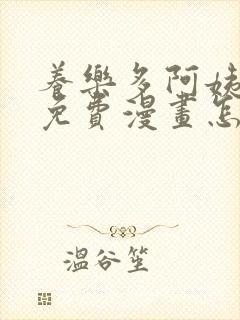 養樂多阿姨
免費漫畫怎
溫谷笙